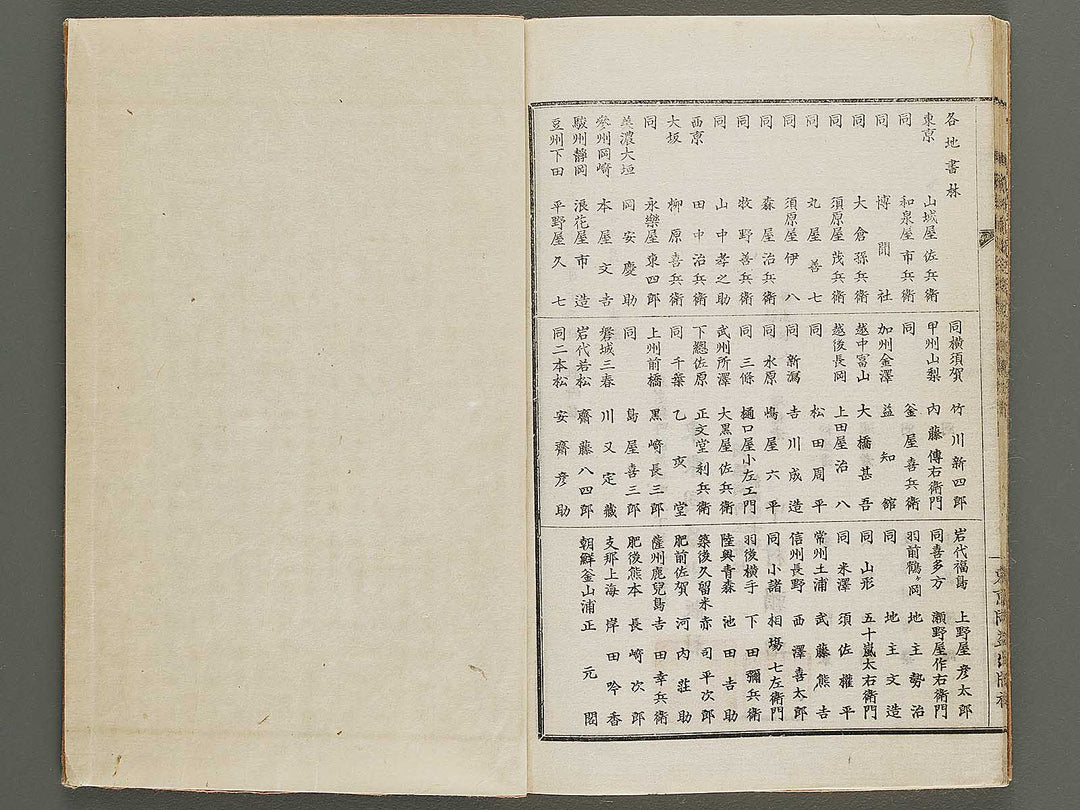 各地書林
東京 山城屋佐兵衛
同 和泉屋市兵衛
同 博聞社
同 大倉孫兵衛
同 須原屋茂兵衛
同 丸屋善七
同 須原屋伊八
同 森屋治兵衛
同 牧野善兵衛
同 山中孝之助
西京 田中治兵衛
大坂 柳原喜兵衛
同 永樂屋東四郎
美濃大垣 岡安慶助
參州岡崎 本屋文吉
駿州靜岡 浪花屋市造
豆州下田 平野屋久七
同橫須賀 竹川新四郎
甲州山梨 內藤傳右衛門
同 釜屋喜兵衛
加州金澤 益知館
越中富山 大橋甚吾
越後長岡 上田屋治八
同 松田周平
同新潟 吉川成造
同水原 嶋屋六平
同三條 樋口屋小左エ門
武州所澤 大黒屋佐兵衛
下總佐原 正文堂利兵衛
同千葉 乙亥堂
上州前橋 黒崎長三郎
同 島屋喜三郎
磐城三春 川又定藏
岩代若松 齋藤八四郎
同二本松 安齋彦助
岩代福島 上野屋彦太郎
同喜多方 瀬野屋作右衛門
羽前鶴ヶ岡 地主勢治
同 地主文造
同山形 五十嵐太右衛門
同米澤 須佐權平
常州土浦 武藤熊吉
信州長野 西澤喜太郎
同小諸 相塲七左衛門
羽後橫手 下田彌兵衛
陸奥青森 池田吉助
築後久留米 赤司平次郎
肥前佐賀 河內莊助
薩州鹿兒島 吉田幸兵衛
肥後熊本 長崎次郎
支那上海 岸田吟香
朝鮮釜山浦 正元閣